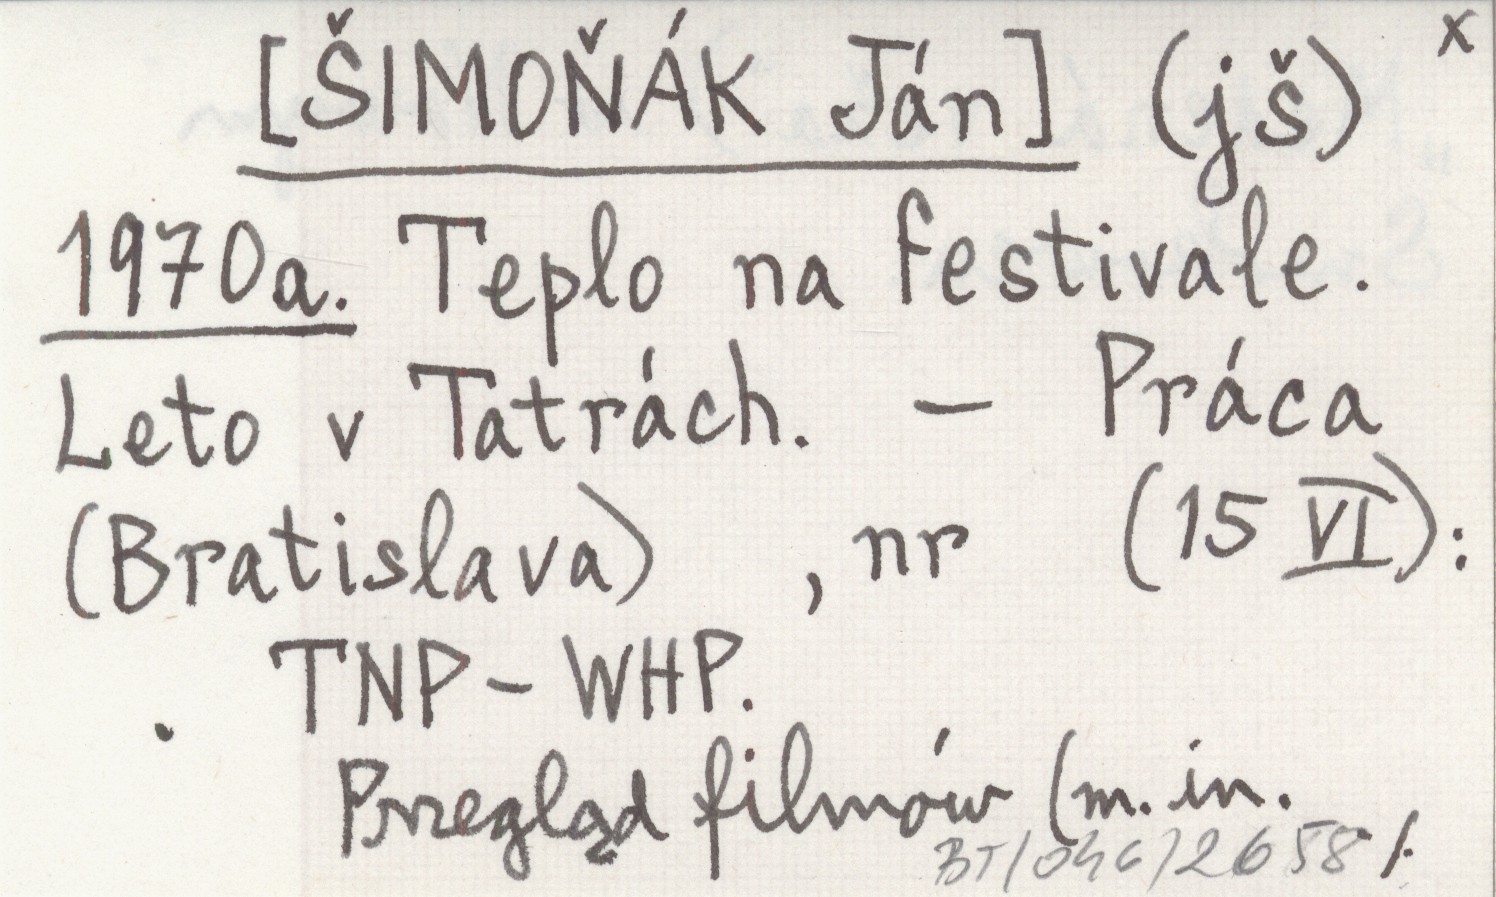 x
[ŠIMOŇÁK Ján] (jš)
1970a. Teplo na festivale.
Leto v Tatrách. – Práca
(Bratislava) , nr (15 VI):
TNP – WHP.
Przegląd filmów (m. in.
BT/046/2658 /.